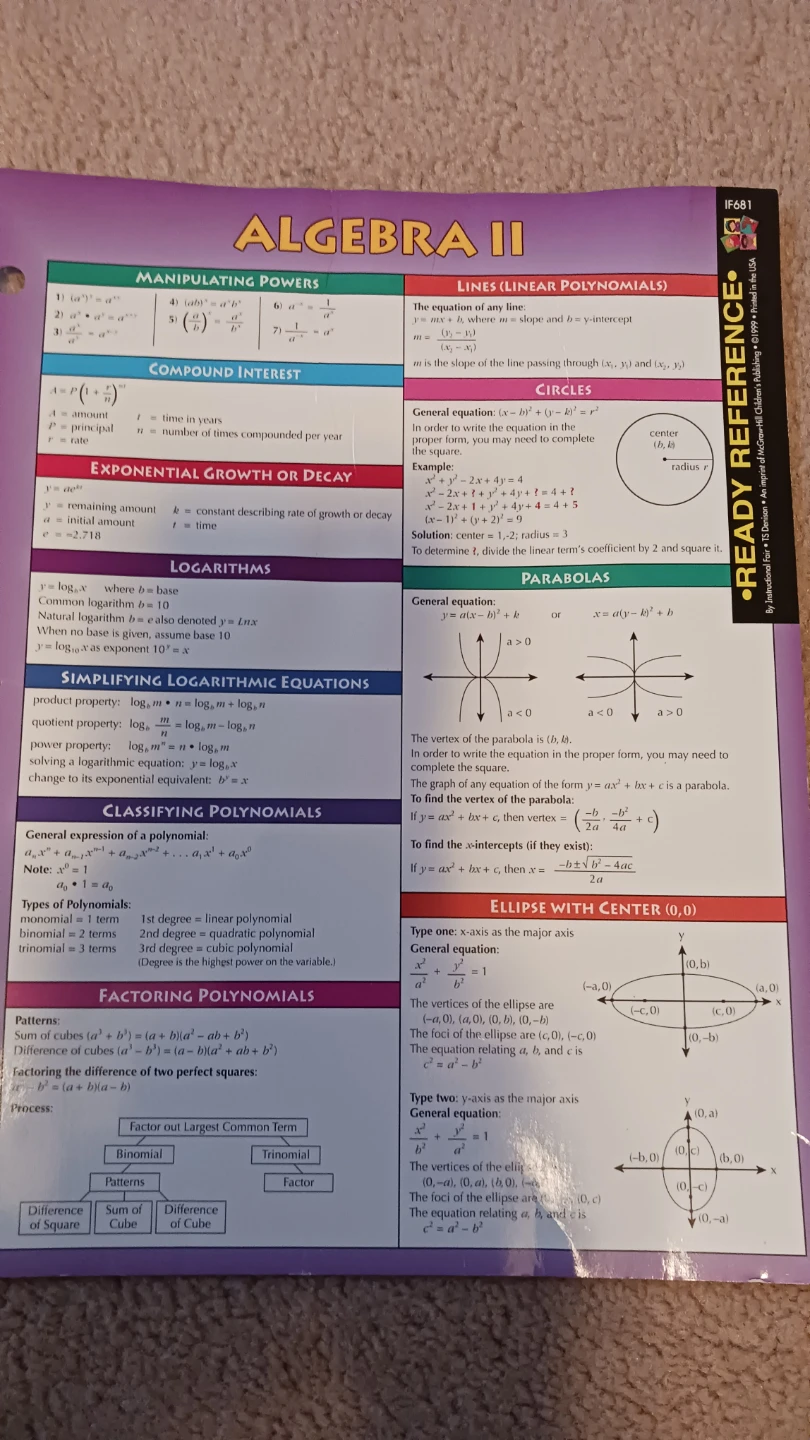 ALGEBRA II
IF681
•READY REFERENCE•
By Instructional Fair • TS Denison • An imprint of McGraw-Hill Children's Publishing • ©1999 • Printed in the USA
MANIPULATING POWERS
1)
2)
3)
4) (ab)ˣ = aˣbˣ
5)
6)
7)
COMPOUND INTEREST
A = P(1 + r/n)ⁿᵗ
A = amount
P = principal
r = rate
t = time in years
n = number of times compounded per year
EXPONENTIAL GROWTH OR DECAY
y = aeᵏᵗ
y = remaining amount
a = initial amount
e = ≈2.718
k = constant describing rate of growth or decay
t = time
LOGARITHMS
y = log_b x where b = base
Common logarithm b = 10
Natural logarithm b = e also denoted y = Lnx
When no base is given, assume base 10
y = log₁₀ x as exponent 10ʸ = x
SIMPLIFYING LOGARITHMIC EQUATIONS
product property: log_b m • n = log_b m + log_b n
quotient property: log_b m/n = log_b m – log_b n
power property: log_b mⁿ = n • log_b m
solving a logarithmic equation: y = log_b x
change to its exponential equivalent: bʸ = x
CLASSIFYING POLYNOMIALS
General expression of a polynomial:
aₙxⁿ + aₙ₋₁xⁿ⁻¹ + aₙ₋₂xⁿ⁻² + . . . a₁x¹ + a₀x⁰
Note: x⁰ = 1
a₀ • 1 = a₀
Types of Polynomials:
monomial = 1 term 1st degree = linear polynomial
binomial = 2 terms 2nd degree = quadratic polynomial
trinomial = 3 terms 3rd degree = cubic polynomial
(Degree is the highest power on the variable.)
FACTORING POLYNOMIALS
Patterns:
Sum of cubes (a³ + b³) = (a + b)(a² – ab + b²)
Difference of cubes (a³ – b³) = (a – b)(a² + ab + b²)
Factoring the difference of two perfect squares:
– b² = (a + b)(a – b)
Process:
Factor out Largest Common Term
Binomial
Trinomial
Patterns
Factor
Difference of Square
Sum of Cube
Difference of Cube
LINES (LINEAR POLYNOMIALS)
The equation of any line:
y = mx + b, where m = slope and b = y-intercept
m = (y₂ – y₁)/(x₂ – x₁)
m is the slope of the line passing through (x₁, y₁) and (x₂, y₂)
CIRCLES
General equation: (x – h)² + (y – k)² = r²
In order to write the equation in the
proper form, you may need to complete
the square.
Example:
x² + y² – 2x + 4y = 4
x² – 2x + ? + y² + 4y + ? = 4 + ?
x² – 2x + 1 + y² + 4y + 4 = 4 + 5
(x – 1)² + (y + 2)² = 9
Solution: center = 1,-2; radius = 3
To determine ?, divide the linear term's coefficient by 2 and square it.
center
(h, k)
radius r
PARABOLAS
General equation:
y = a(x – h)² + k or x = a(y – k)² + h
a > 0
a < 0
a < 0
a > 0
The vertex of the parabola is (h, k).
In order to write the equation in the proper form, you may need to
complete the square.
The graph of any equation of the form y = ax² + bx + c is a parabola.
To find the vertex of the parabola:
If y = ax² + bx + c, then vertex = (–b/2a, –b²/4a + c)
To find the x-intercepts (if they exist):
If y = ax² + bx + c, then x = (–b ± √b² – 4ac)/2a
ELLIPSE WITH CENTER (0,0)
Type one: x-axis as the major axis
General equation:
x²/a² + y²/b² = 1
The vertices of the ellipse are
(–a, 0), (a, 0), (0, b), (0, –b)
The foci of the ellipse are (c, 0), (–c, 0)
The equation relating a, b, and c is
c² = a² – b²
y
(0, b)
(–a, 0)
(a, 0)
x
(–c, 0)
(c, 0)
(0, –b)
Type two: y-axis as the major axis
General equation:
x²/b² + y²/a² = 1
The vertices of the
(0, –a), (0, a), (b, 0),
The foci of the ellipse are (0, c)
The equation relating a, b, and c is
c² = a² – b²
y
(0, a)
(–b, 0)
(0, c)
(b, 0)
x
(0, –c)
(0, –a)